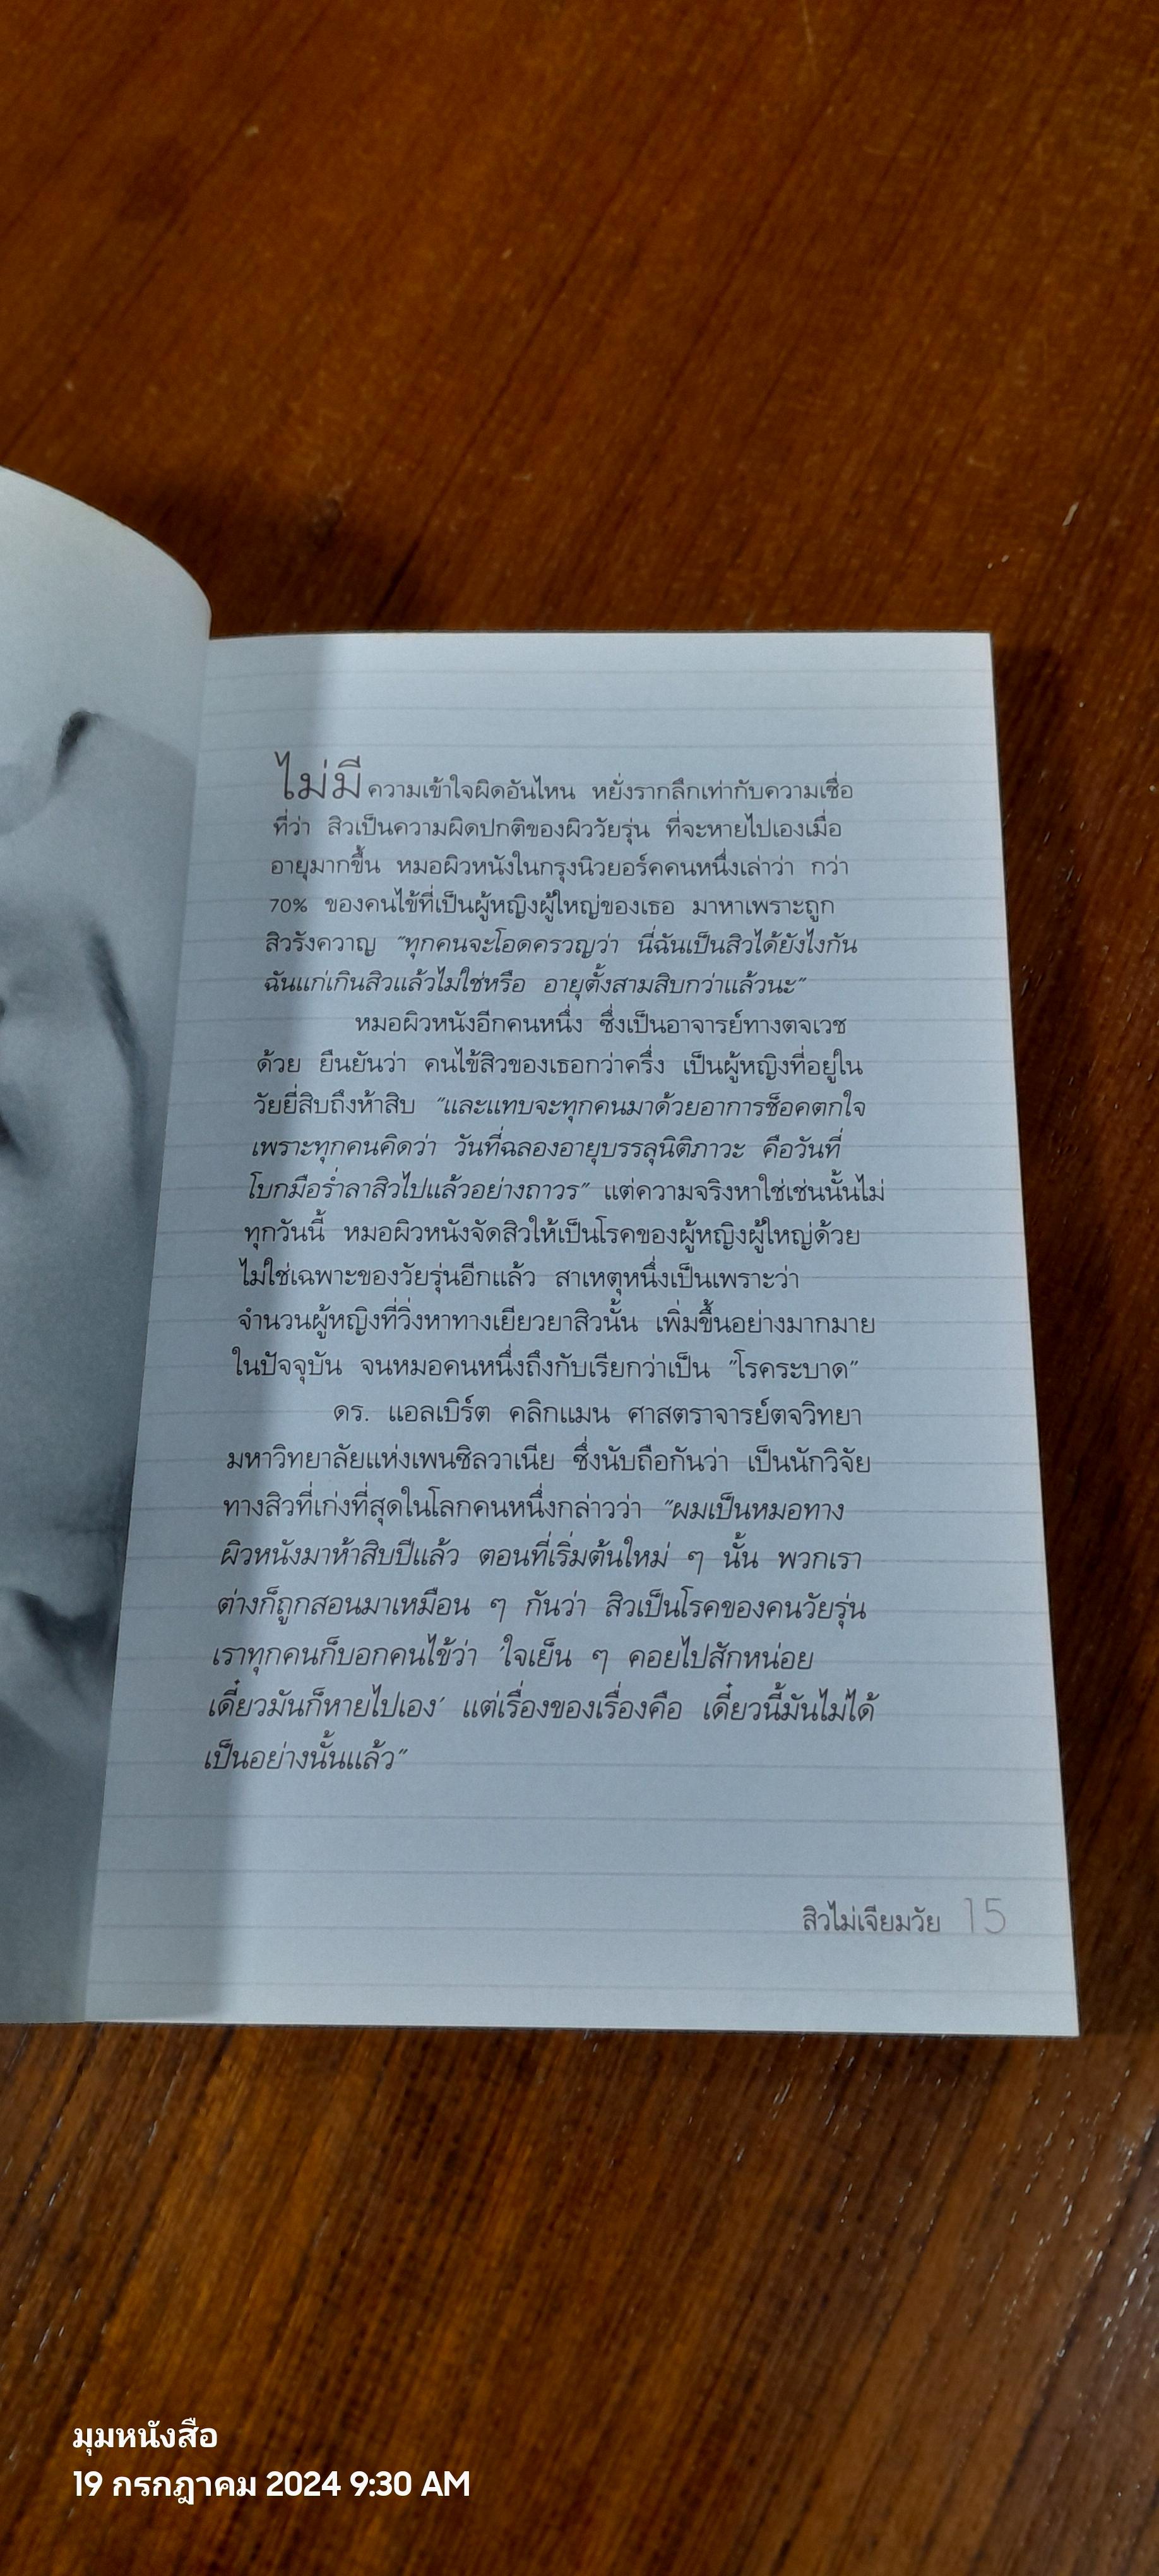 ไม่มีความเข้าใจผิดอันไหน หยั่งรากลึกเท่ากับความเชื่อ
ที่ว่า สิวเป็นความผิดปกติของผิววัยรุ่น ที่จะหายไปเองเมื่อ
อายุมากขึ้น หมอผิวหนังในกรุงนิวยอร์คคนหนึ่งเล่าว่า กว่า
70% ของคนไข้ที่เป็นผู้หญิงผู้ใหญ่ของเธอ มาหาเพราะถูก
สิวรังควาญ "ทุกคนจะโอดครวญว่า นี่ฉันเป็นสิวได้ยังไงกัน
ฉันแก่เกินสิวแล้วไม่ใช่หรือ อายุตั้งสามสิบกว่าแล้วนะ"
หมอผิวหนังอีกคนหนึ่ง ซึ่งเป็นอาจารย์ทางตจเวช
ด้วย ยืนยันว่า คนไข้สิวของเธอกว่าครึ่ง เป็นผู้หญิงที่อยู่ใน
วัยยี่สิบถึงห้าสิบ "และแทบจะทุกคนมาด้วยอาการช็อคตกใจ
เพราะทุกคนคิดว่า วันที่ฉลองอายุบรรลุนิติภาวะ คือวันที่
โบกมือร่ำลาสิวไปแล้วอย่างถาวร" แต่ความจริงหาใช่เช่นนั้นไม่
ทุกวันนี้ หมอผิวหนังจัดสิวให้เป็นโรคของผู้หญิงผู้ใหญ่ด้วย
ไม่ใช่เฉพาะของวัยรุ่นอีกแล้ว สาเหตุหนึ่งเป็นเพราะว่า
จำนวนผู้หญิงที่วิ่งหาทางเยียวยาสิวนั้น เพิ่มขึ้นอย่างมากมาย
ในปัจจุบัน จนหมอคนหนึ่งถึงกับเรียกว่าเป็น "โรคระบาด"
ดร. แอลเบิร์ต คลิกแมน ศาสตราจารย์ตจวิทยา
มหาวิทยาลัยแห่งเพนซิลวาเนีย ซึ่งนับถือกันว่า เป็นนักวิจัย
ทางสิวที่เก่งที่สุดในโลกคนหนึ่งกล่าวว่า "ผมเป็นหมอทาง
ผิวหนังมาห้าสิบปีแล้ว ตอนที่เริ่มต้นใหม่ ๆ นั้น พวกเรา
ต่างก็ถูกสอนมาเหมือน ๆ กันว่า สิวเป็นโรคของคนวัยรุ่น
เราทุกคนก็บอกคนไข้ว่า 'ใจเย็น ๆ คอยไปสักหน่อย
เดี๋ยวมันก็หายไปเอง' แต่เรื่องของเรื่องคือ เดี๋ยวนี้มันไม่ได้
เป็นอย่างนั้นแล้ว"
สิวไม่เจียมวัย 15
มุมหนังสือ
19 กรกฎาคม 2024 9:30 AM